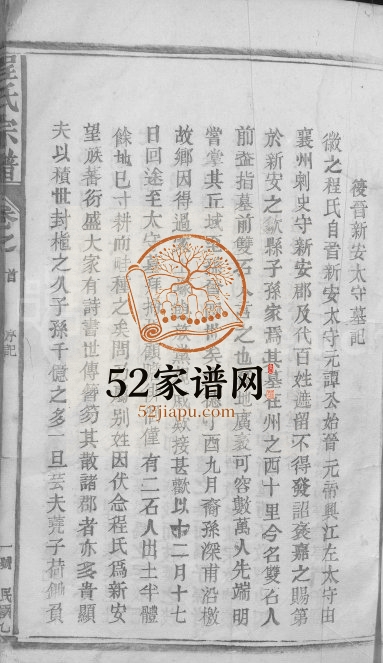 復晉新安太守墓記
徽之程氏自晉新安太守元譚公始晉元帝興江左太守由
襄州刺史守新安郡及代百姓遮留不得發詔褒嘉之賜第
於新安之歙縣子孫家焉其墓在州之西十里今名雙石人
前蓋指墓前雙石人名之也地廣袤可容數萬人先端明
嘗掌其丘域
酉九月裔孫深甫沿檄
故鄉因得過
歎接甚歡以十二月十七
日回途至太守墓
僅有二石人出土半體
餘地已寸耕而畦種之矣問
別姓因伏念程氏爲新安
望族蕃衍盛大家有詩書世傳
笏其散諸郡者亦多貴顯
夫以積世封植之久子孫千億之多一旦芸夫蕘子荷鋤負
程氏宗譜
卷之首
序記
一號
民國乙
52家谱网
52jiapu.com